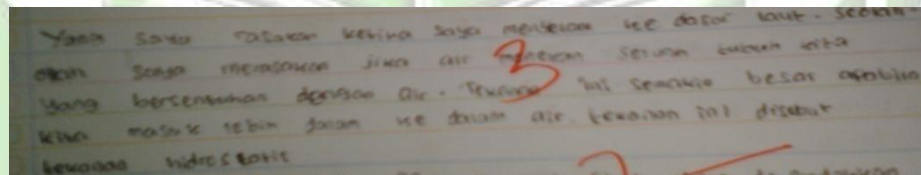 Yang saya rasakan ketika saya menyelam ke dasar laut. Seolah-
olah saya merasakan jika air menekan seluruh tubuh kita
yang bersentuhan dengan air. Tekanan ini semakin besar apabila
kita masuk lebih dalam ke dalam air. tekanan ini disebut
tekanan hidrostatis
3